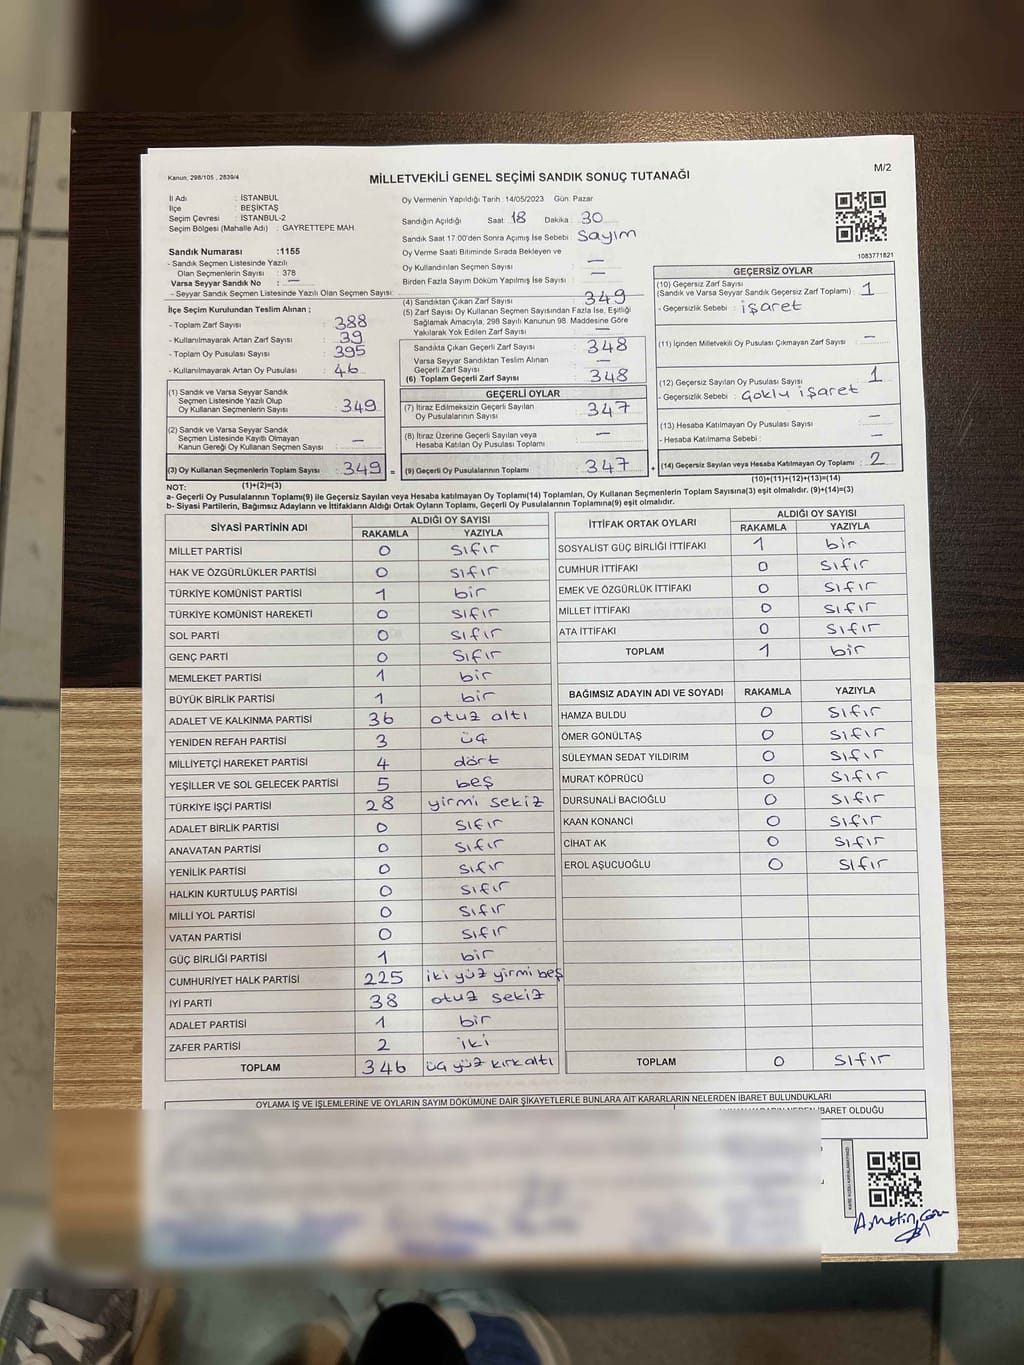 Kanun, 298/105 , 2839/4
MİLLETVEKİLİ GENEL SEÇİMİ SANDIK SONUÇ TUTANAĞI
M/2
İl Adı : İSTANBUL
İlçe : BEŞİKTAŞ
Seçim Çevresi : İSTANBUL-2
Seçim Bölgesi (Mahalle Adı) : GAYRETTEPE MAH.
Oy Vermenin Yapıldığı Tarih :14/05/2023 Gün: Pazar
Sandığın Açıldığı Saat: 18 Dakika : 30
Sandık Saat 17:00'den Sonra Açımış İse Sebebi : Sayım
Oy Verme Saati Bitiminde Sırada Bekleyen ve
Oy Kullandırılan Seçmen Sayısı : —
Birden Fazla Sayım Döküm Yapılmış İse Sayısı : —
1083771821
Sandık Numarası :1155
- Sandık Seçmen Listesinde Yazılı
Olan Seçmenlerin Sayısı : 378
Varsa Seyyar Sandık No : —
- Seyyar Sandık Seçmen Listesinde Yazılı Olan Seçmen Sayısı:
İlçe Seçim Kurulundan Teslim Alınan ;
- Toplam Zarf Sayısı : 388
- Kullanılmayarak Artan Zarf Sayısı : 39
- Toplam Oy Pusulası Sayısı : 395
- Kullanılmayarak Artan Oy Pusulası : 46
(1) Sandık ve Varsa Seyyar Sandık
Seçmen Listesinde Yazılı Olup
Oy Kullanan Seçmenlerin Sayısı : 349
(2) Sandık ve Varsa Seyyar Sandık
Seçmen Listesinde Kayıtlı Olmayan
Kanun Gereği Oy Kullanan Seçmen Sayısı : —
(3) Oy Kullanan Seçmenlerin Toplam Sayısı : 349 =
(1)+(2)=(3)
(4) Sandıktan Çıkan Zarf Sayısı : 349
(5) Zarf Sayısı Oy Kullanan Seçmen Sayısından Fazla İse, Eşitliği
Sağlamak Amacıyla, 298 Sayılı Kanunun 98. Maddesine Göre
Yakılarak Yok Edilen Zarf Sayısı : —
Sandıkta Çıkan Geçerli Zarf Sayısı : 348
Varsa Seyyar Sandıktan Teslim Alınan
Geçerli Zarf Sayısı : —
(6) Toplam Geçerli Zarf Sayısı : 348
GEÇERLİ OYLAR
(7) İtiraz Edilmeksizin Geçerli Sayılan
Oy Pusulalarının Sayısı : 347
(8) İtiraz Üzerine Geçerli Sayılan veya
Hesaba Katılan Oy Pusulası Toplamı : —
(9) Geçerli Oy Pusulalarının Toplamı : 347 +
GEÇERSİZ OYLAR
(10) Geçersiz Zarf Sayısı
(Sandık ve Varsa Seyyar Sandık Geçersiz Zarf Toplamı) : 1
- Geçersizlik Sebebi : işaret
(11) İçinden Milletvekili Oy Pusulası Çıkmayan Zarf Sayısı : —
(12) Geçersiz Sayılan Oy Pusulası Sayısı : 1
- Geçersizlik Sebebi : Çoklu işaret
(13) Hesaba Katılmayan Oy Pusulası Sayısı : —
- Hesaba Katılmama Sebebi : —
(14) Geçersiz Sayılan veya Hesaba Katılmayan Oy Toplamı : 2
(10)+(11)+(12)+(13)=(14)
NOT:
a- Geçerli Oy Pusulalarının Toplamı(9) ile Geçersiz Sayılan veya Hesaba katılmayan Oy Toplamı(14) Toplamları, Oy Kullanan Seçmenlerin Toplam Sayısına(3) eşit olmalıdır. (9)+(14)=(3)
b- Siyasi Partilerin, Bağımsız Adayların ve İttifakların Aldığı Ortak Oyların Toplamı, Geçerli Oy Pusulalarının Toplamına(9) eşit olmalıdır.
SİYASİ PARTİNİN ADI ALDIĞI OY SAYISI
RAKAMLA YAZIYLA
MİLLET PARTİSİ 0 sıfır
HAK VE ÖZGÜRLÜKLER PARTİSİ 0 sıfır
TÜRKİYE KOMÜNİST PARTİSİ 1 bir
TÜRKİYE KOMÜNİST HAREKETİ 0 sıfır
SOL PARTİ 0 sıfır
GENÇ PARTİ 0 sıfır
MEMLEKET PARTİSİ 1 bir
BÜYÜK BİRLİK PARTİSİ 1 bir
ADALET VE KALKINMA PARTİSİ 36 otuz altı
YENİDEN REFAH PARTİSİ 3 üç
MİLLİYETÇİ HAREKET PARTİSİ 4 dört
YEŞİLLER VE SOL GELECEK PARTİSİ 5 beş
TÜRKİYE İŞÇİ PARTİSİ 28 yirmi sekiz
ADALET BİRLİK PARTİSİ 0 sıfır
ANAVATAN PARTİSİ 0 sıfır
YENİLİK PARTİSİ 0 sıfır
HALKIN KURTULUŞ PARTİSİ 0 sıfır
MİLLİ YOL PARTİSİ 0 sıfır
VATAN PARTİSİ 0 sıfır
GÜÇ BİRLİĞİ PARTİSİ 1 bir
CUMHURİYET HALK PARTİSİ 225 iki yüz yirmi beş
İYİ PARTİ 38 otuz sekiz
ADALET PARTİSİ 1 bir
ZAFER PARTİSİ 2 iki
TOPLAM 346 üç yüz kırk altı
İTTİFAK ORTAK OYLARI ALDIĞI OY SAYISI
RAKAMLA YAZIYLA
SOSYALİST GÜÇ BİRLİĞİ İTTİFAKI 1 bir
CUMHUR İTTİFAKI 0 sıfır
EMEK VE ÖZGÜRLÜK İTTİFAKI 0 sıfır
MİLLET İTTİFAKI 0 sıfır
ATA İTTİFAKI 0 sıfır
TOPLAM 1 bir
BAĞIMSIZ ADAYIN ADI VE SOYADI RAKAMLA YAZIYLA
HAMZA BULDU 0 sıfır
ÖMER GÖNÜLTAŞ 0 sıfır
SÜLEYMAN SEDAT YILDIRIM 0 sıfır
MURAT KÖPRÜCÜ 0 sıfır
DURSUNALİ BACIOĞLU 0 sıfır
KAAN KONANCİ 0 sıfır
CİHAT AK 0 sıfır
EROL AŞUCUOĞLU 0 sıfır
TOPLAM 0 sıfır
OYLAMA İŞ VE İŞLEMLERİNE VE OYLARIN SAYIM DÖKÜMÜNE DAİR ŞİKAYETLERLE BUNLARA AİT KARARLARIN NELERDEN İBARET BULUNDUKLARI
İBARET OLDUĞU